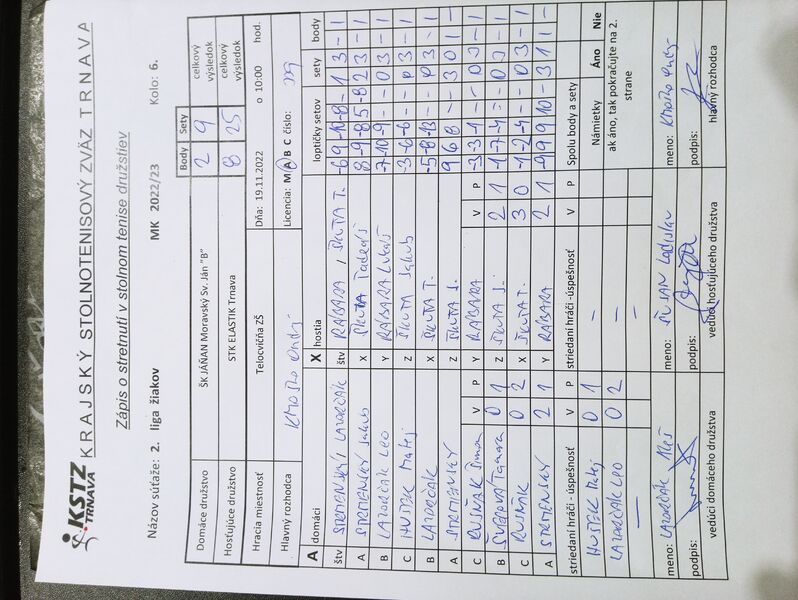 KSTZ
TRNAVA
KRAJSKÝ STOLNOTENISOVÝ ZVÄZ TRNAVA
Zápis o stretnutí v stolnom tenise družstiev
Názov súťaže: 2. liga žiakov MK 2022/23 Kolo: 6.
Body Sety
Domáce družstvo ŠK JÁŇAN Moravský Sv. Ján "B" 2 9 celkový výsledok
Hosťujúce družstvo STK ELASTIK Trnava 8 25 celkový výsledok
Hracia miestnosť Telocvičňa ZŠ Dňa: 19.11.2022 o 10:00 hod.
Hlavný rozhodca Licencia: M A B C číslo:
A domáci X hostia loptičky setov sety body
štv STRMENSKÝ LAZORČÁK štv RÁBARA, ŠKUTA T. -6 9 -10 -8 - 1 3 - 1
A STRMENSKÝ Jakub X ŠKUTA Tadeáš 8 -9 -8 5 -8 2 3 - 1
B LAZORČÁK LEO Y RÁBARA Lukáš -7 -10 -9 - - 0 3 - 1
C HUTEK Matej Z ŠKUTA Jakub -3 -6 -6 - - 0 3 - 1
B LAZORČÁK X ŠKUTA T. -5 -8 -13 - - 0 3 - 1
A STRMENSKÝ Z ŠKUTA J. 9 6 8 - - 3 0 1 -
C V P Y RÁBARA V P -3 -3 -1 - - 0 3 - 1
B 0 1 Z ŠKUTA J. 2 1 -1 -7 -4 - - 0 3 - 1
C 0 2 X ŠKUTA T. 3 0 -1 -2 -4 - - 0 3 - 1
A STRMENSKÝ 2 1 Y RÁBARA 2 1 -9 9 9 10 - 3 1 1 -
striedaní hráči - úspešnosť V P striedaní hráči -úspešnosť V P Spolu body a sety
HUTEK Matej 0 1 - Námietky Áno Nie
LAZORČÁK LEO 0 2 - ak áno, tak pokračujte na 2. strane
- -
meno: LAZORČÁK meno: Ladislav meno:
podpis: podpis: podpis:
vedúci domáceho družstva vedúci hosťujúceho družstva hlavný rozhodca